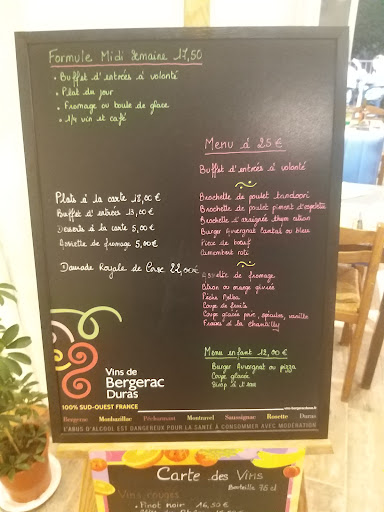 Formule Midi Semaine 17,50
• Buffet d'entrées à volonté
• Plat du jour
• Fromage ou boule de glace
• 1/4 vin et café
Menu à 25 €
Buffet d'entrées à volonté
Brochette de poulet tandoori
Brochette de poulet piment d'espelette
Brochette d'araignée thym citron
Burger Auvergnat Cantal ou bleu
Pièce de boeuf
Camembert roti
Assiette de fromage
Citron ou orange givrée
Pêche Melba
Coupe de fruits
Coupe glacée poire, spéculos, vanille
Fraises à la chantilly
Plats à la carte 18,00 €
Buffet d'entrées 13,00 €
Desserts à la carte 5,00 €
Assiette de fromage 5,00 €
Daurade Royale de Corse 22,00 €
Menu enfant 12,00 €
Burger Auvergnat ou pizza
Coupe glacée
Sirop à l'eau
Vins de
Bergerac
Duras
100% SUD-OUEST FRANCE
Bergerac Monbazillac Pécharmant Montravel Saussignac Rosette Duras
L'ABUS D'ALCOOL EST DANGEREUX POUR LA SANTÉ À CONSOMMER AVEC MODÉRATION
Carte des Vins
Bouteille 75 cl
Vins rouges
• Pinot noir 16,50 €